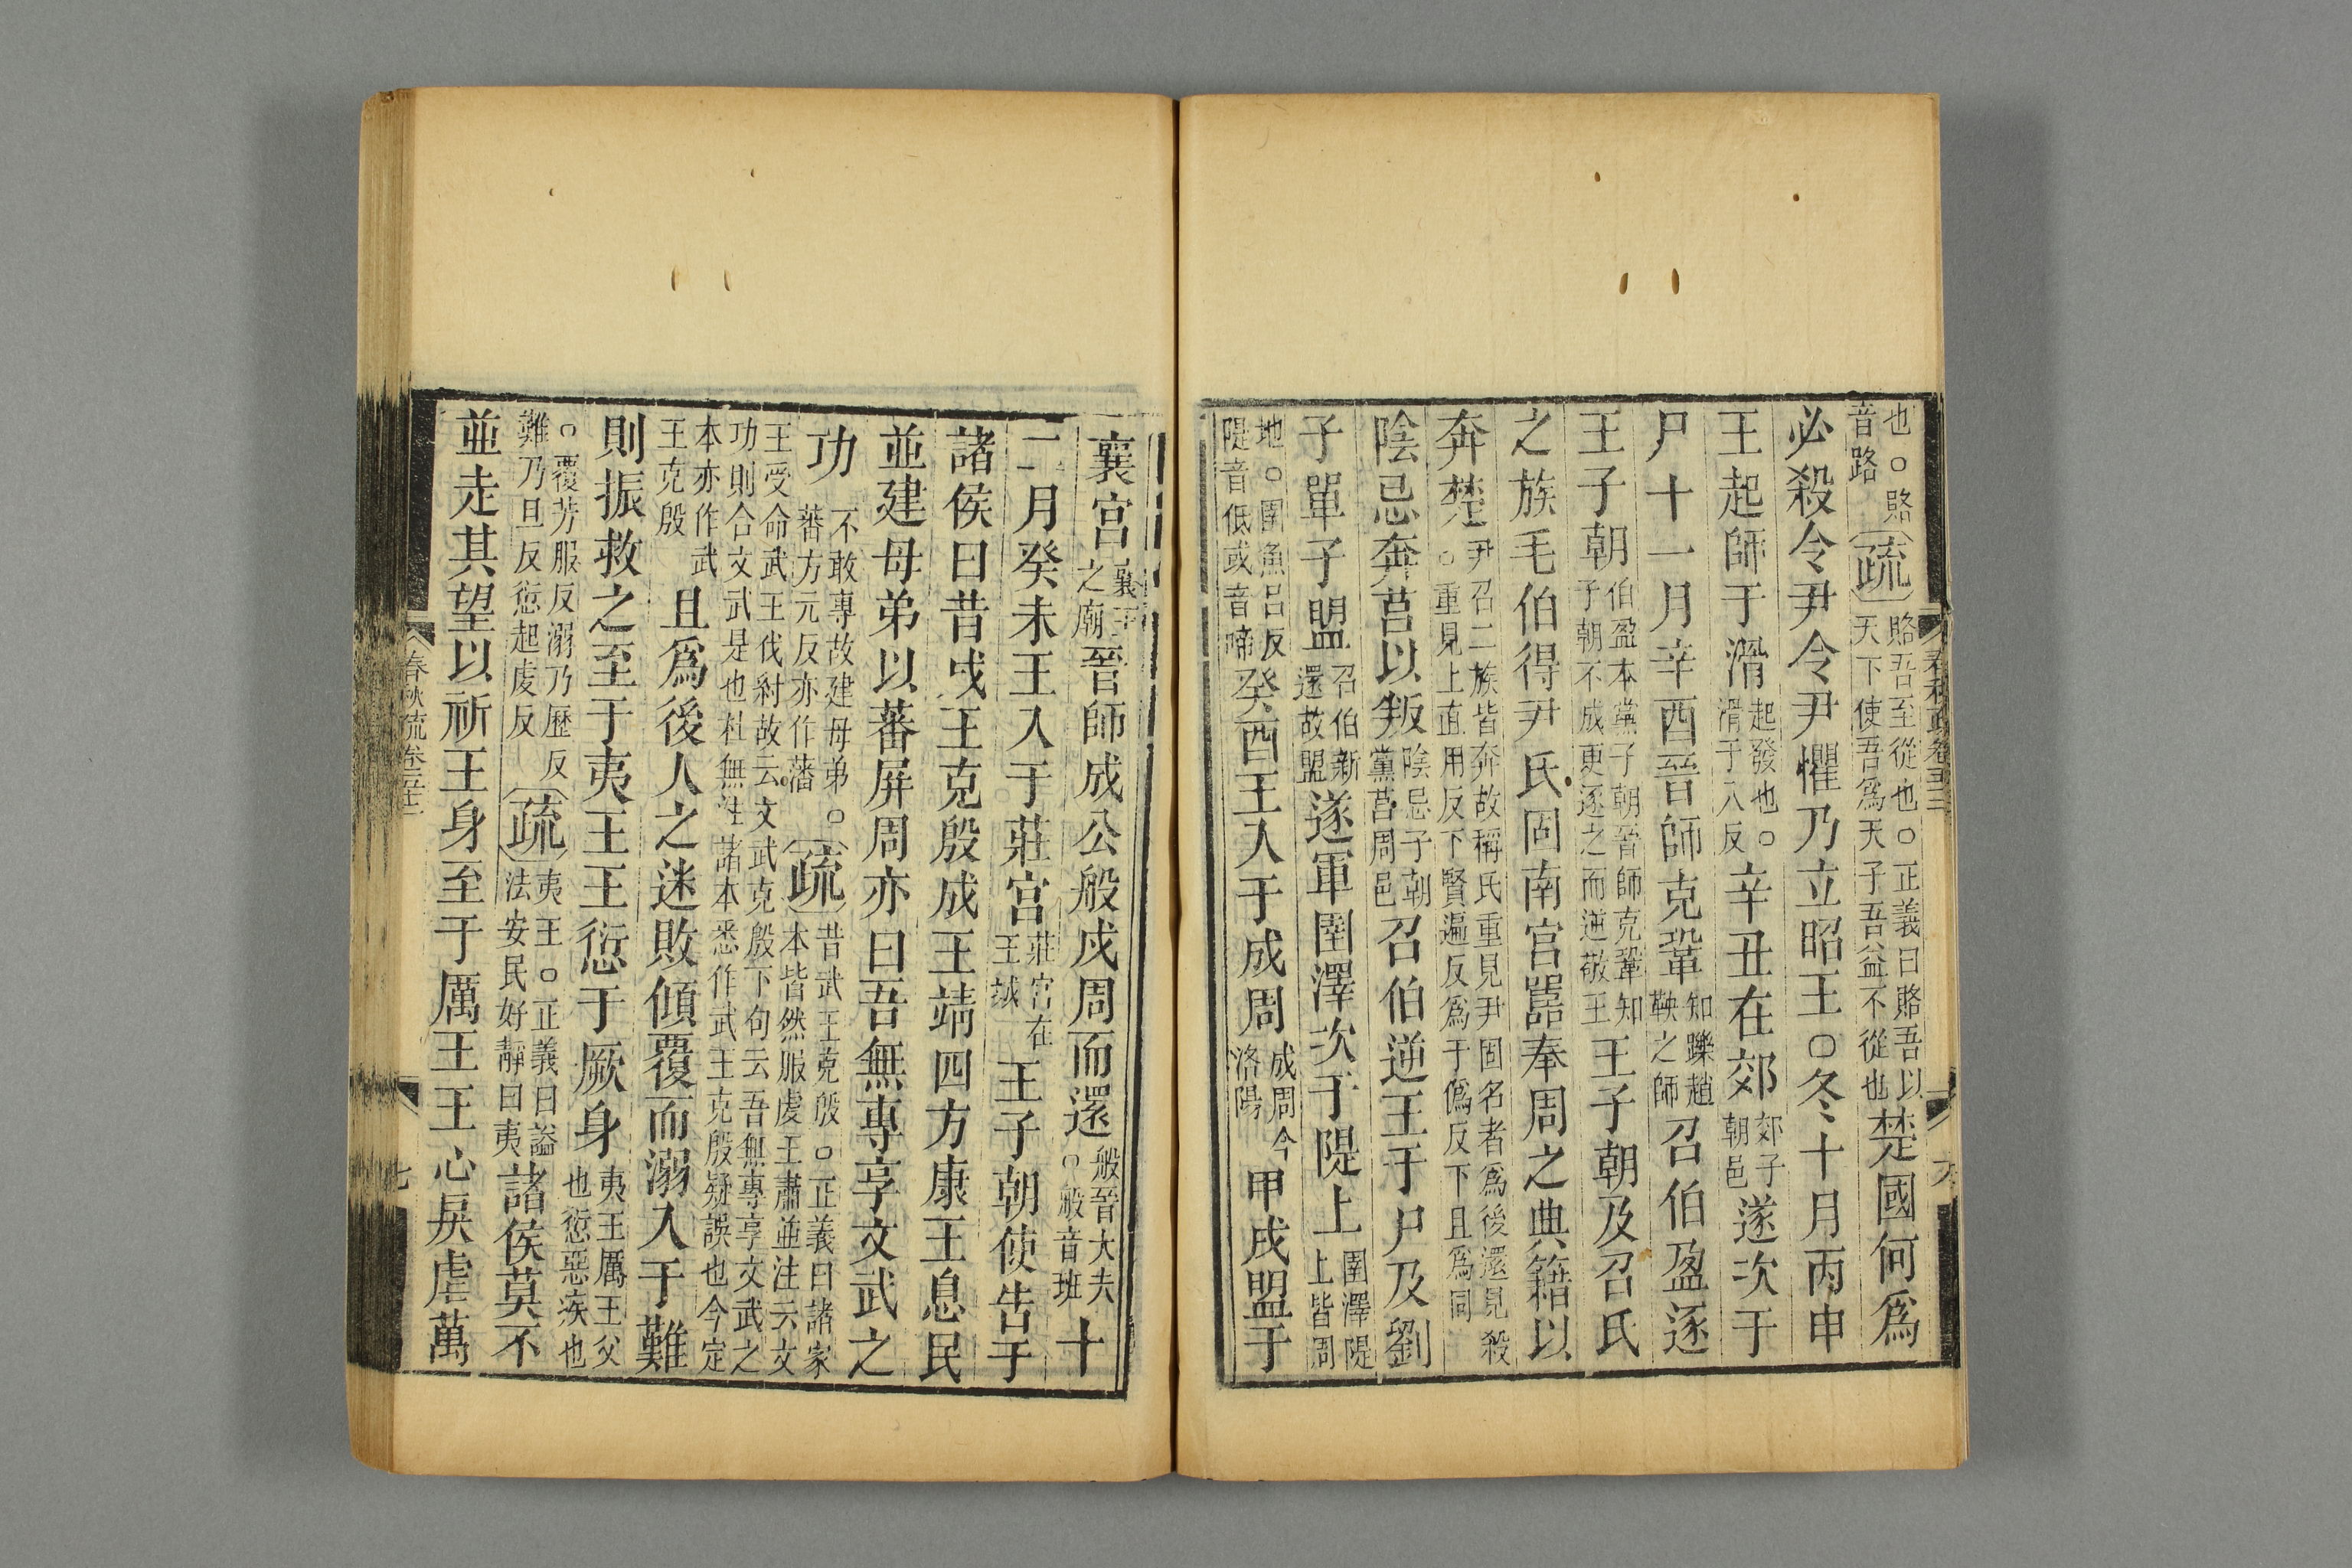 也○賂音路疏賂吾至從也○正義曰賂吾以天下使吾爲天子吾益不從也楚國何爲
必殺令尹令尹懼乃立昭王○冬十月丙申
王起師于滑起發也○滑于八反辛丑在郊郊子朝邑遂次于
尸十一月辛酉晉師克鞏知躒趙鞅之師召伯盈逐
王子朝伯盈本黨子朝晉師克鞏知子朝不成更逐之而逆敬王王子朝及召氏
之族毛伯得尹氏固南宮嚚奉周之典籍以
奔楚尹召二族皆奔故稱氏重見尹固名者爲後還見殺○重見上直用反下賢遍反爲于僞反下且爲同
陰忌奔莒以叛陰忌子朝黨莒周邑召伯逆王于尸及劉
子單子盟召伯新還故盟遂軍圉澤次于隄上圉澤隄上皆周
地○圉魚呂反隄音低或音啼癸酉王入于成周成周今洛陽甲戌盟于
襄宮襄王之廟晉師成公般戍周而還般晉大夫○般音班十
二月癸未王入于莊宮莊宮在王城王子朝使告于
諸侯曰昔成王克殷成王靖四方康王息民
並建母弟以蕃屏周亦曰吾無專享文武之
功不敢專故建母弟○蕃方元反亦作藩疏昔武王克殷○正義曰諸家本皆然服虔王肅並注云文
王受命武王伐紂故云文武克殷下句云吾無專享文武之功則合文武是也杜無注諸本悉作武王克殷疑誤也今定
本亦作武王克殷且爲後人之迷敗傾覆而溺入于難
則振救之至于夷王王愆于厥身夷王厲王父也愆惡疾也
○覆芳服反溺乃歷反難乃旦反愆起虔反疏夷王○正義曰諡法安民好靜曰夷諸侯莫不
並走其望以祈王身至于厲王王心戾虐萬
春秋疏卷
七